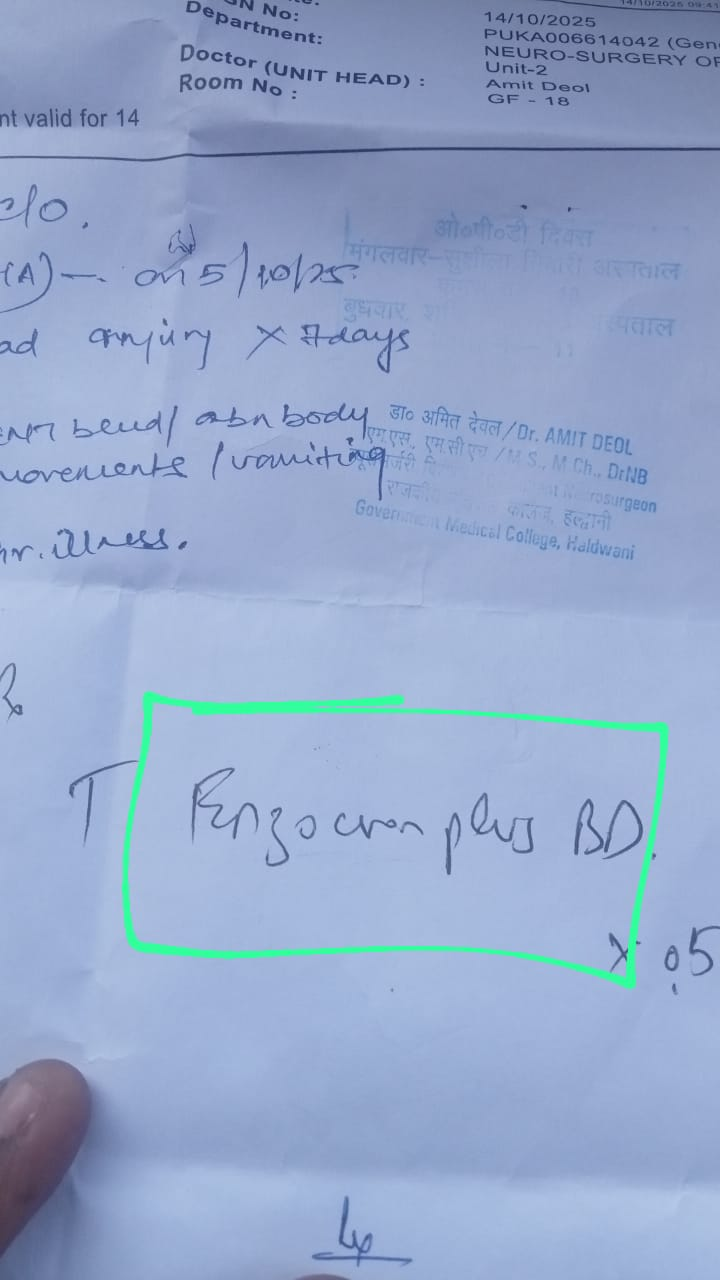 14/10/2025 09:41
GN No:
14/10/2025
Department:
PUKA006614042 (Gen
NEURO-SURGERY OP
Unit-2
Doctor (UNIT HEAD) :
Amit Deol
Room No :
GF - 18
nt valid for 14
c/o.
(A) — on 5/10/25
ओ०पी०डी दिवस
मंगलवार- सुशीला तिवारी अस्पताल
बुधवार
स्पताल
ad injury x 7days
ENT bleed/ abn body
movements / vomiting
डा० अमित देवल / Dr. AMIT DEOL
एम.एस., एम.सी.एच / M.S., M.Ch., DrNB
Neurosurgeon
कालेज, हल्द्वानी
Government Medical College, Haldwani
hr. illness.
Rx
T plus BD
x 05